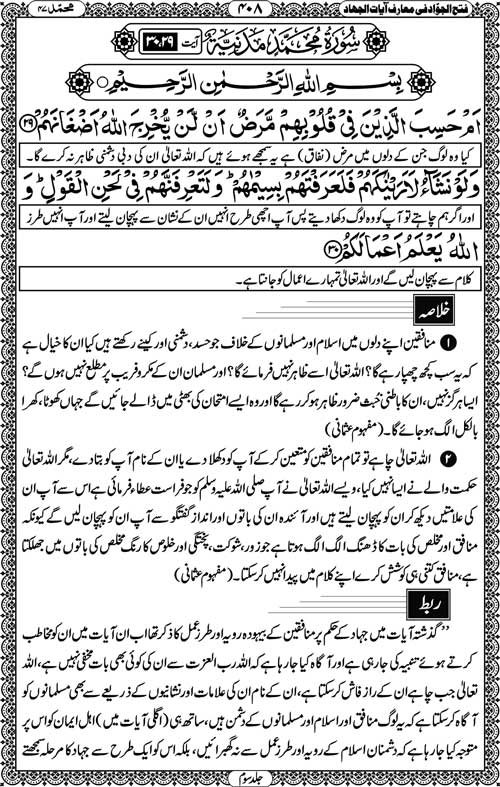 فتح الجوّاد فی معارف آیات الجہاد ۴۰۸ محمّد ۴۷
سُوْرَةُ مُحَمَّدٍ مَدَنِیَّةٌ آیت ۳۰،۲۹
بِسْمِ اللهِ الرَّحْمٰنِ الرَّحِیْمِ
اَمْ حَسِبَ الَّذِیْنَ فِیْ قُلُوْبِهِمْ مَّرَضٌ اَنْ لَّنْ یُّخْرِجَ اللهُ اَضْغَانَهُمْ ﴿۲۹﴾
کیا وہ لوگ جن کے دلوں میں مرض (نفاق) ہے یہ سمجھے ہوئے ہیں کہ اللہ تعالیٰ ان کی دبی دشمنی ظاہر نہ کرے گا۔
وَلَوْ نَشَآءُ لَاَرَیْنٰكَهُمْ فَلَعَرَفْتَهُمْ بِسِیْمٰهُمْ وَلَتَعْرِفَنَّهُمْ فِیْ لَحْنِ الْقَوْلِ وَ
اور اگر ہم چاہتے تو آپ کو وہ لوگ دکھا دیتے پس آپ اچھی طرح انہیں ان کے نشان سے پہچان لیتے اور آپ انہیں طرز
اللهُ یَعْلَمُ اَعْمَالَكُمْ ﴿۳۰﴾
کلام سے پہچان لیں گے اور اللہ تعالیٰ تمہارے اعمال کو جانتا ہے۔
خلاصہ
۱ منافقین اپنے دلوں میں اسلام اور مسلمانوں کے خلاف جو حسد، دشمنی اور کینے رکھتے ہیں کیا ان کا خیال ہے
کہ یہ سب کچھ چھپا رہے گا؟ اللہ تعالیٰ اسے ظاہر نہیں فرمائے گا؟ اور مسلمان ان کے مکر و فریب پر مطلع نہیں ہوں گے؟
ایسا ہرگز نہیں، ان کا باطنی خبث ضرور ظاہر ہو کر رہے گا اور وہ ایسے امتحان کی بھٹی میں ڈالے جائیں گے جہاں کھوٹا، کھرا
بالکل الگ ہو جائے گا۔ (مفہوم عثمانی)
۲ اللہ تعالیٰ چاہے تو تمام منافقین کو متعین کرکے آپ کو دکھلا دے یا ان کے نام آپ کو بتا دے، مگر اللہ تعالیٰ
حکمت والے نے ایسا نہیں کیا، ویسے اللہ تعالیٰ نے آپ صلی اللہ علیہ وسلم کو جو فراست عطاء فرمائی ہے اس سے آپ ان
کی علامتیں دیکھ کر ان کو پہچان لیتے ہیں اور آئندہ ان کی باتوں اور انداز گفتگو سے آپ ان کو پہچان لیں گے کیونکہ
منافق اور مخلص کی بات کا ڈھنگ الگ الگ ہوتا ہے جو زور، شوکت، پختگی اور خلوص کا رنگ مخلص کی باتوں میں جھلکتا
ہے، منافق کتنی ہی کوشش کرے اپنے کلام میں پیدا نہیں کر سکتا۔ (مفہوم عثمانی)
ربط
”گذشتہ آیات میں جہاد کے حکم پر منافقین کے بیہودہ رویہ اور طرز عمل کا ذکر تھا اب ان آیات میں ان کو مخاطب
کرتے ہوئے تنبیہ کی جا رہی ہے اور آگاہ کیا جا رہا ہے کہ اللہ رب العزت سے ان کی کوئی بھی بات مخفی نہیں ہے، اللہ
تعالیٰ جب چاہے ان کے راز فاش کر سکتا ہے، ان کے نام ان کی علامات اور نشانیوں کے ذریعے سے بھی مسلمانوں کو
آگاہ کر سکتا ہے کہ یہ لوگ منافق اور اسلام اور مسلمانوں کے دشمن ہیں، ساتھ ہی (اگلی آیات میں) اہل ایمان کو اس پر
متوجہ کیا جا رہا ہے کہ دشمنان اسلام کے رویہ اور طرز عمل سے نہ گھبرائیں، بلکہ اس کو ایک طرح سے جہاد کا مرحلہ سمجھتے
جلد سوم